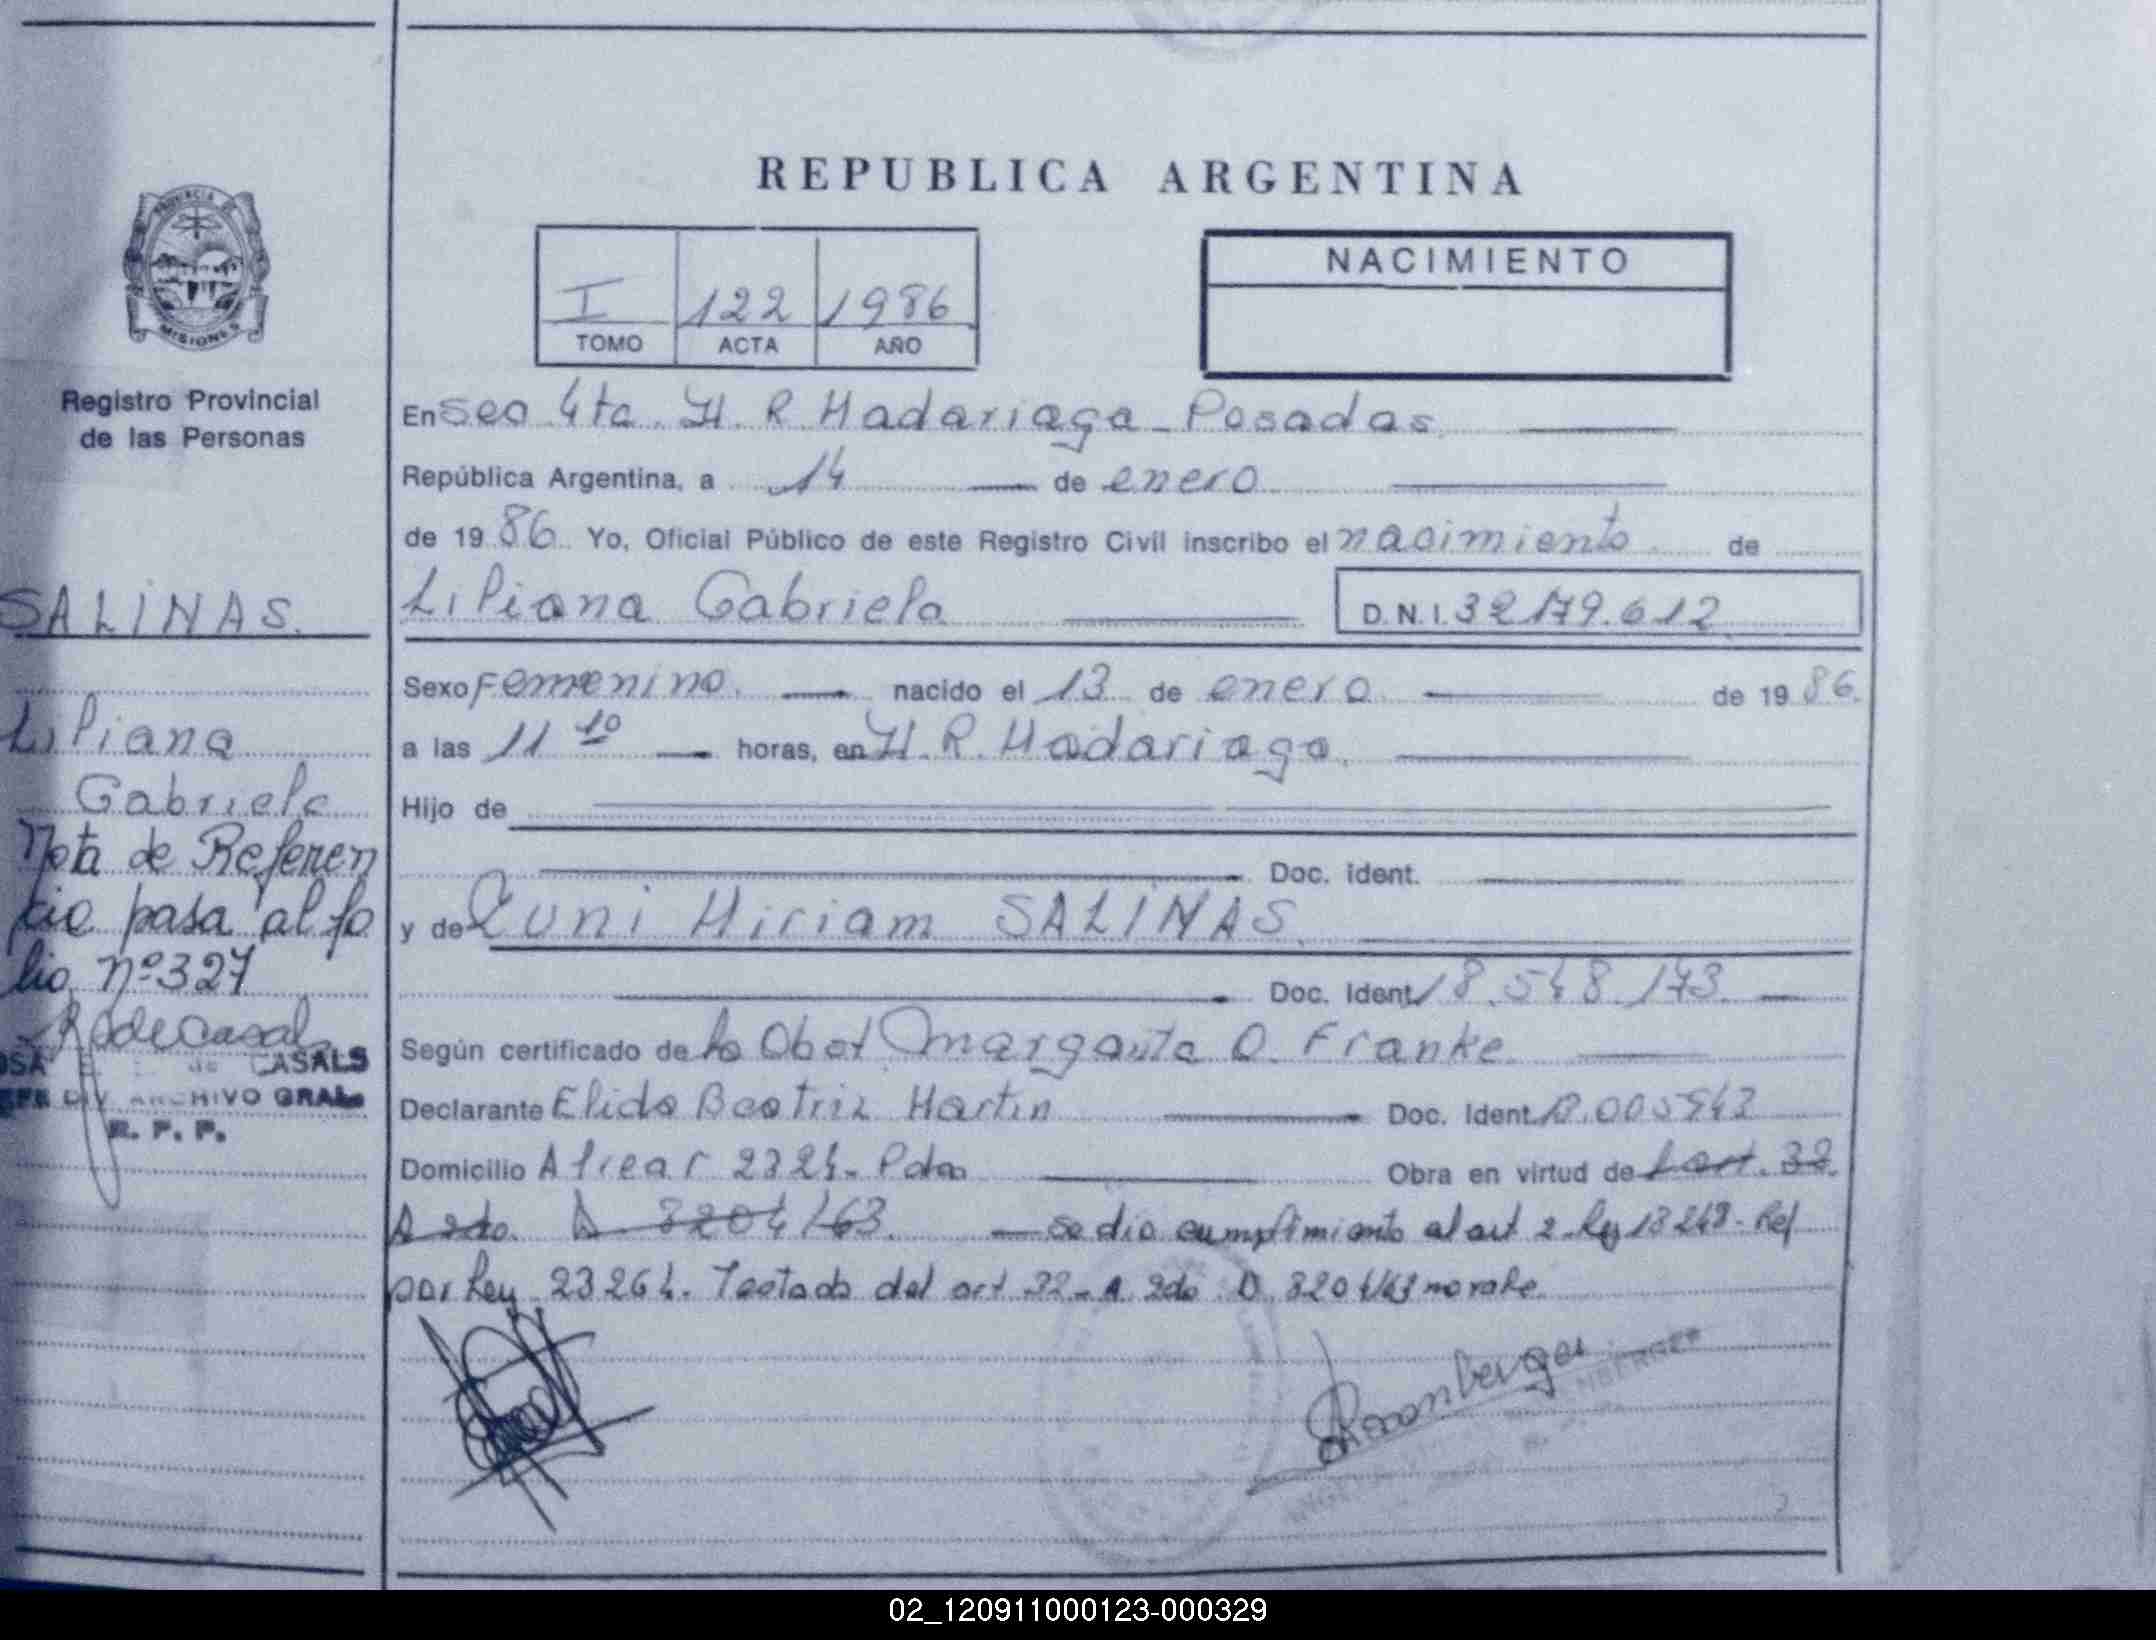 REPUBLICA ARGENTINA
PROVINCIA DE
MISIONES
Registro Provincial
de las Personas
I 122 1986
TOMO ACTA AÑO
NACIMIENTO
En Sec 4ta. H. R. Madariaga - Posadas
República Argentina, a 14 de enero
de 1986 Yo, Oficial Público de este Registro Civil inscribo el nacimiento de
Liliana Gabriela D.N.I. 32.179.612
Sexo Femenino. nacido el 13 de enero de 1986.
a las 11 10 horas, en H. R. Madariaga.
Hijo de
Doc. Ident.
y de Miriam SALINAS.
Doc. Ident. 18.548.173
Según certificado de la Obst Margarita O. Franke
Declarante Elida Beatriz Martin Doc. Ident.
Domicilio Alvear 2324 - Pdas Obra en virtud de l art. 32.
A 2do. D 8204/63. se dio cumplimiento al art 2 - Ley 18248 - Ref
por Ley 23264. Testado del art 32 - A. 2do. D. 8204/63 no vale
SALINAS.
Liliana
Gabriela
Nota de Referen
cia pasa al fo
lio nº 327
de CASALS
DIV. ARCHIVO GRAL.
R. P. P.
02_120911000123-000329